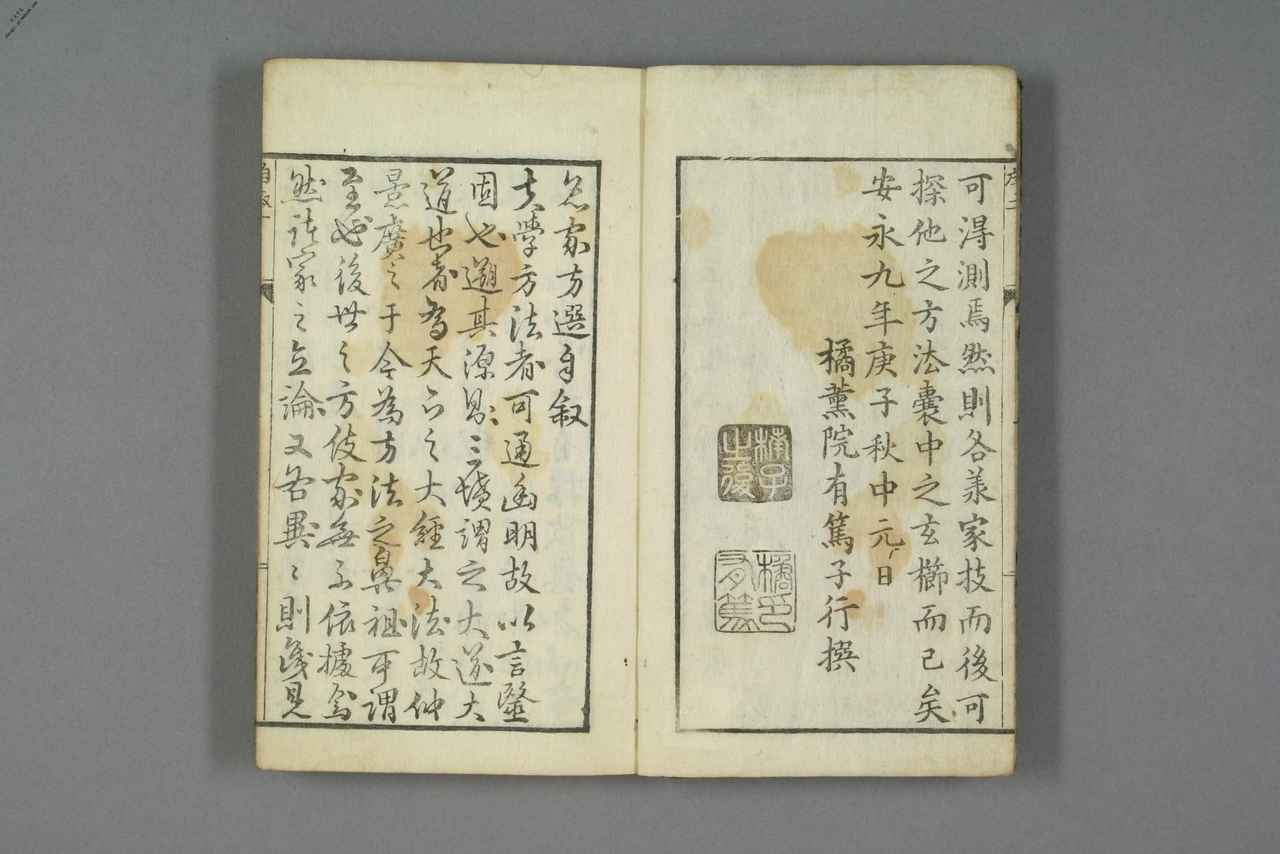 可得測焉然則各美家技而後可
探他之方法囊中之玄櫛而已矣
安永九年庚子秋中元日
橘薰院有篤子行撰
橘印有篤
名家方選自叙
夫學方法者可通幽明故以言毉
固也遡其源易三墳謂之大道大
道也者為天下之大經大法故仲
景廣之于今為方法之鼻祖可謂
至哉後世之方伎家無不依據焉
然諸家之立論又各異異則淺見